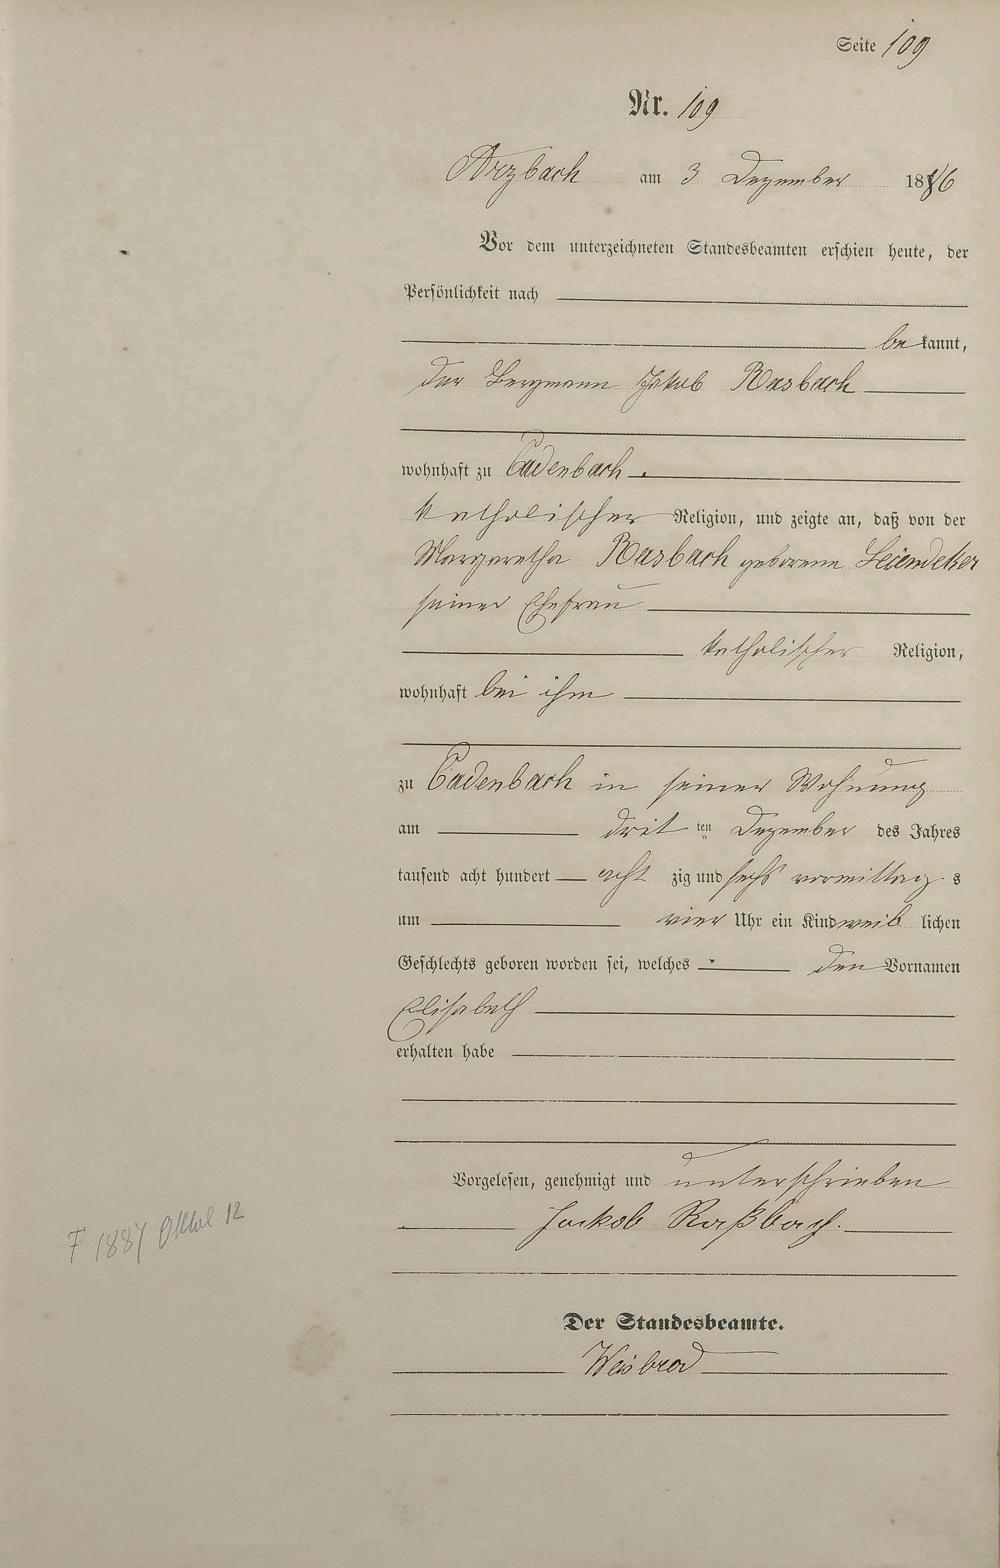 Seite 109
Nr. 109
Arzbach am 3 Dezember 1886
Vor dem unterzeichneten Standesbeamten erschien heute, der
Persönlichkeit nach
bekannt,
der Bergmann Jakob Rasbach
wohnhaft zu Cadenbach.
katholischer Religion, und zeigte an, daß von der
Margaretha Rasbach geborene
seiner Ehefrau
katholischer Religion,
wohnhaft bei ihm
zu Cadenbach in seiner Wohnung
am dritten Dezember des Jahres
tausend acht hundert achtzig und sechs vormittags
um vier Uhr ein Kind weiblichen
Geschlechts geboren worden sei, welches den Vornamen
Elisabeth
erhalten habe
Vorgelesen, genehmigt und unterschrieben
Jackob Raßbach.
F 1887 12
Der Standesbeamte.
Weisbrod